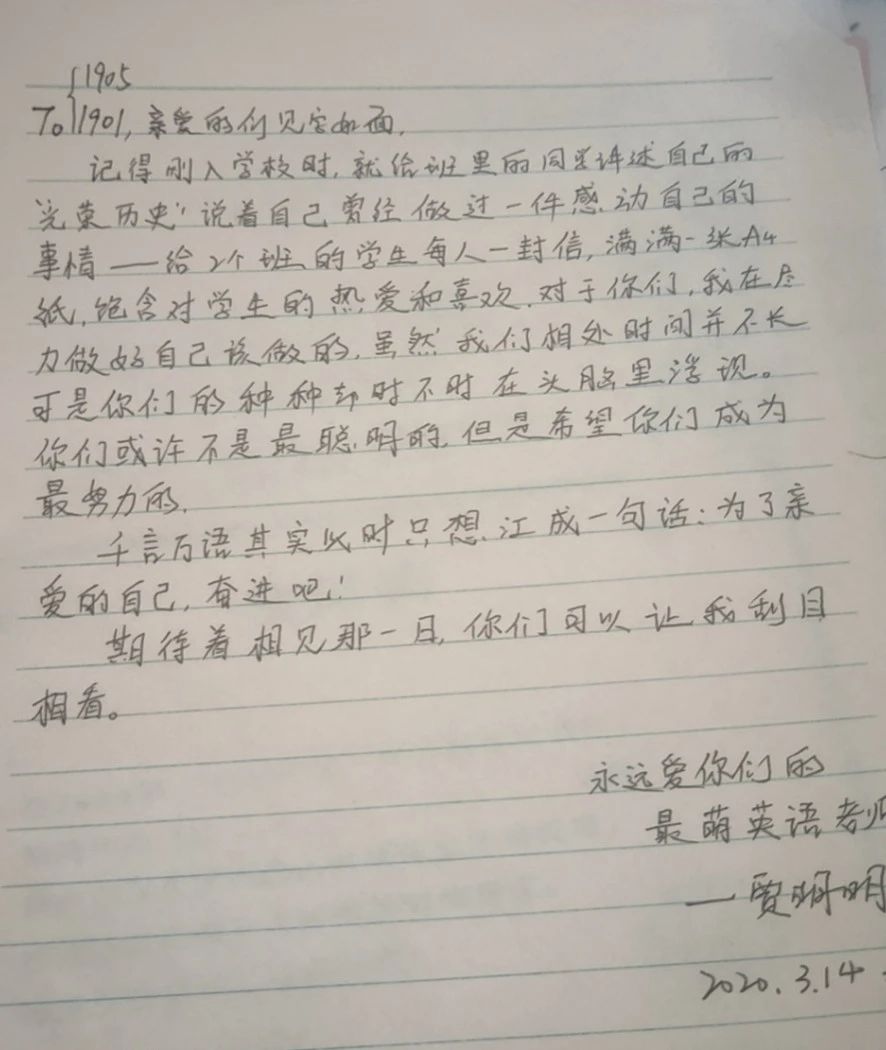 1905
To 1901,亲爱的们见字如面,
记得刚入学校时,就给班里的同学讲述自己的
"光荣历史"说着自己曾经做过一件感动自己的
事情——给2个班的学生每人一封信,满满一张A4
纸,饱含对学生的热爱和喜欢.对于你们,我在尽
力做好自己该做的,虽然我们相处时间并不长
可是你们的种种却时不时在头脑里浮现。
你们或许不是最聪明的,但是希望你们成为
最努力的.
千言万语其实此时只想汇成一句话:为了亲
爱的自己,奋进吧!
期待着相见那一日,你们可以让我刮目
相看。
永远爱你们的
最萌英语老师
—贾明明
2020.3.14